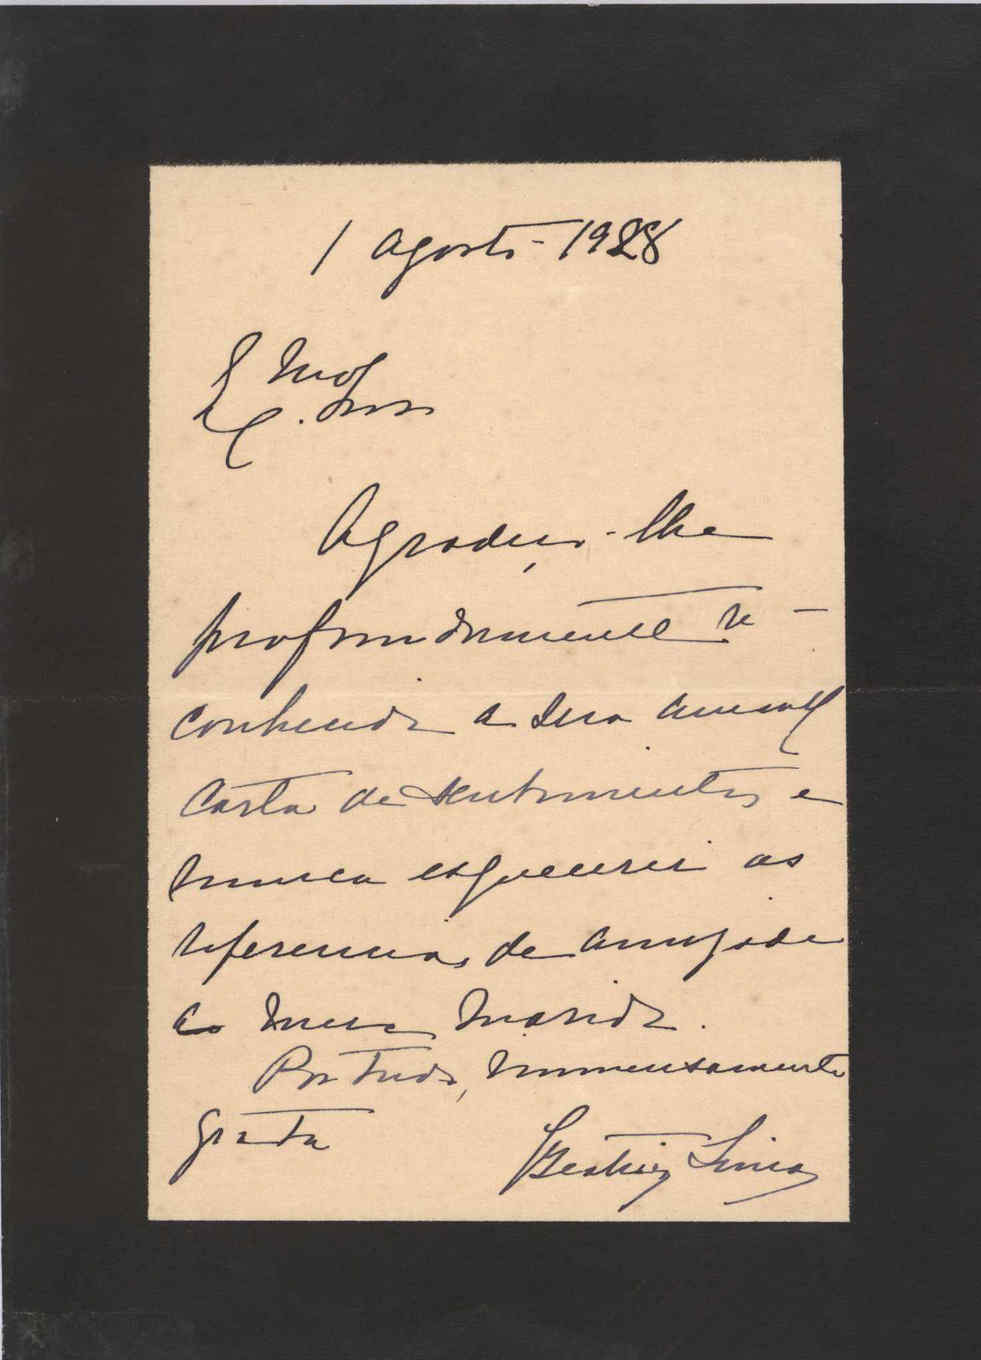 1 Agosto - 1928
Ex.mo
Agradeço-lhe
profundamente re-
conhecida a sua amavel
Carta de sentimentos e
nunca esquecerei as
referencias de amizade
ao meu marido.
Por tudo, immensamente
grata
Beatriz